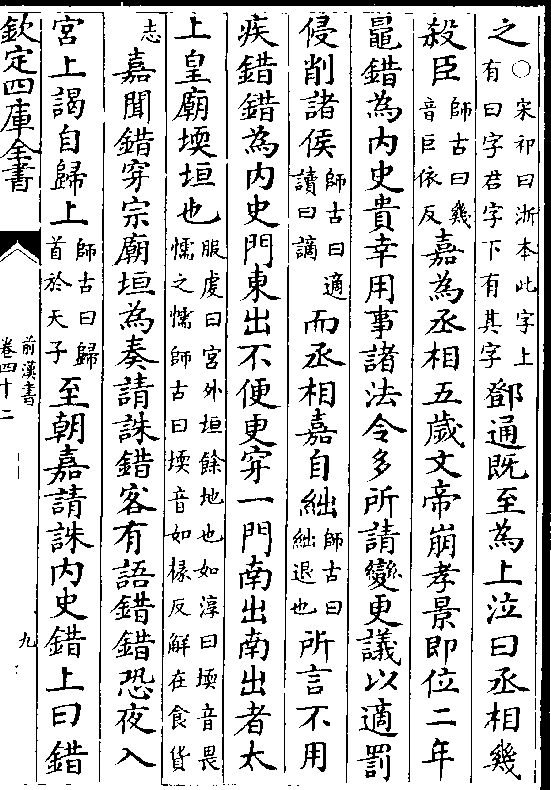 之○宋祁曰浙本此字上有曰字君字下有其字鄧通既至為上泣曰丞相幾
殺臣師古曰幾音巨依反嘉為丞相五歲文帝崩孝景即位二年
鼂錯為内史貴幸用事諸法令多所請變更議以適罰
侵削諸侯師古曰適讀曰讁而丞相嘉自絀師古曰絀退也所言不用
疾錯錯為内史門東出不便更穿一門南出南出者太
上皇廟堧垣也服虔曰宫外垣餘地也如淳曰堧音畏懦之懦師古曰堧音如椽反解在食貨
志嘉聞錯穿宗廟垣為奏請誅錯客有語錯錯恐夜入
宫上謁自歸上師古曰歸首於天子至朝嘉請誅内史錯上曰錯
欽定四庫全書
前漢書
卷四十二
九